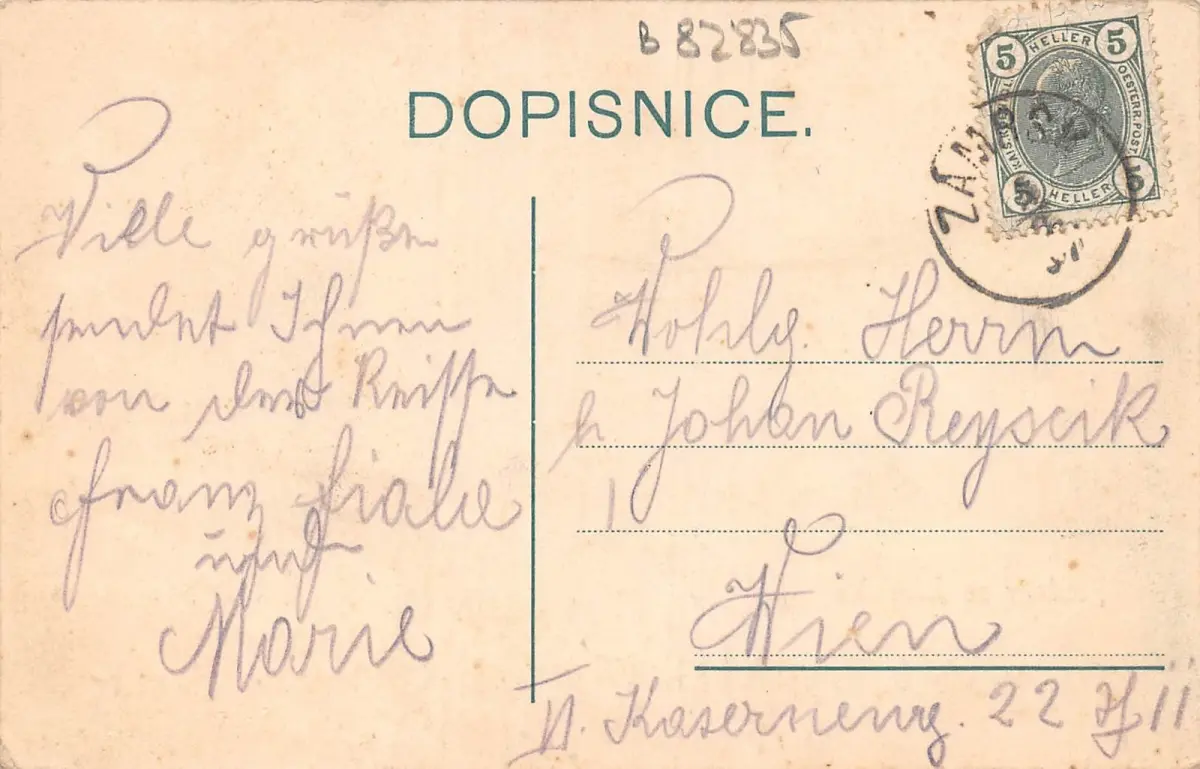 B 82835
DOPISNICE.
5 HELLER 5
KAIS. KÖNIGL. OESTERR. POST.
5 HELLER 5
Viele grüße
sendet Ihnen
von der Reisse
Franz
und
Marie
Wohlg. Herrn
Johan Reyscik
Wien
VI. Kaserneng. 22 II